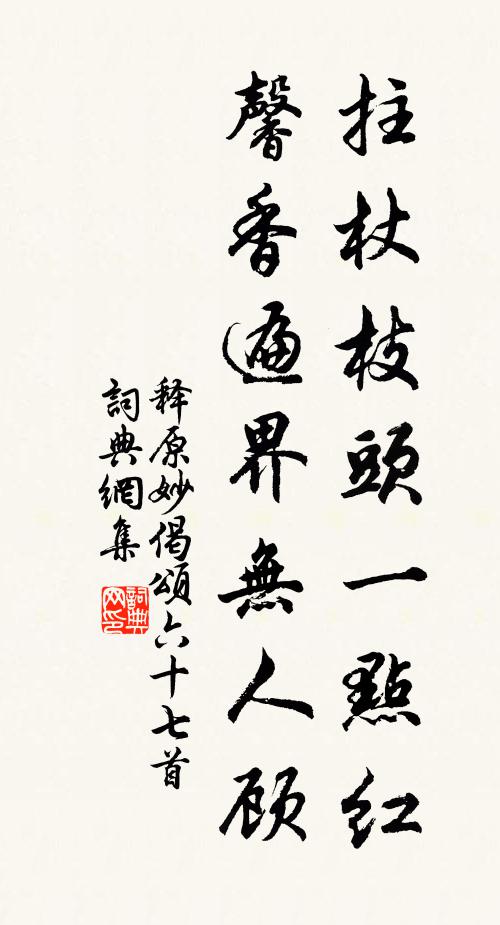 拄杖枝頭一點紅
馨香遍界無人顾
释原妙偈頌六十七首
詞典網集
詞典网印